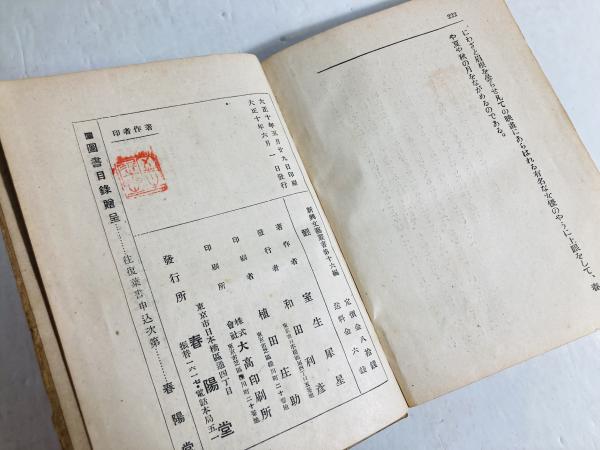 222
にわざと眉根を張らせ凡ての映畫にあらはれる有名な女優のやうに上眼をして、春
や夏や秋の月をながめるのである。
定價金八拾錢
送料金六錢
新興文藝叢書第十六編
著作者 室生犀星
發行者 和田利彦
印刷者 植田庄助
印刷所 株式會社 大高印刷所
東京市日本橋區通四丁目
發行所 春陽堂
振替一六一七・電話本局五一
大正十年五月廿九日印刷
大正十年六月一日發行
著作者印
圖書目錄贈呈……往復葉書申込次第……春陽堂